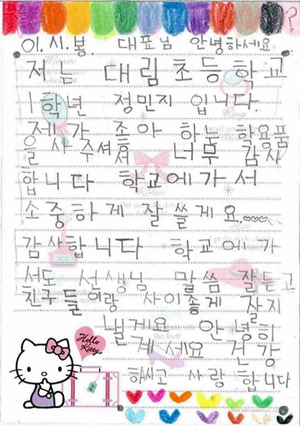 이.시.봉. 대표님 안녕하세요
저는 대림초등학교
1학년 정민지 입니다.
제가 조아 하는 학용품
을 사주셔서 너무 감사
합니다 학교에가서
소중하게 잘 쓸게요
감사합니다 학교에가
서도 선생님 말씀 잘듣고
친구들이랑 사이좋게 잘지
낼게요 안녕히
계세요 건강
하시고 사랑합니다
Hello Kitty